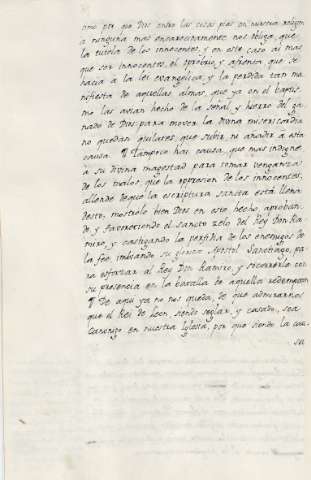 omo por eso Dios entre las cosas pias en nuestra religion
a ninguna mas encarecidamente nos obliga, que
la tutela de los innocentes, y en este caso al mas
que ser innocentes, el oprobrio, y afrenta que se
hacia a la lei evangelica, y la perdida tan ma-
nifiesta de aquellas almas, que ya en el baptis-
mo las avian hecho de la señal, y hierro del ga-
nado de Dios, para mover la divina misericordia
no quedan quilates, que subir, ni añadir a esta
causa. ¶ Tampoco hai causa, que mas indigne
a su divina magestad para tomar venganza
de los malos, que la oppresion de los innocentes,
allende de que la escriptura sancta está llena
desto, mostrolo bien Dios en este hecho, aproban-
do, y favoreciendo el sancto zelo del Rey Don Ra-
miro, y castigando la perfidia de los enemigos de
la fee, imbiando su glorioso Apostol Sanctiago, pa-
ra esforzar al Rey Don Ramiro, y socorrerlo con
su presencia en la batalla de aquellos redempcion
¶ De aqui ya no nos queda, de que admirarnos
que el Rei de Leon, siendo seglar, y casado, sea
Canonigo en nuestra Iglesia, por que siendo la cau-
sa